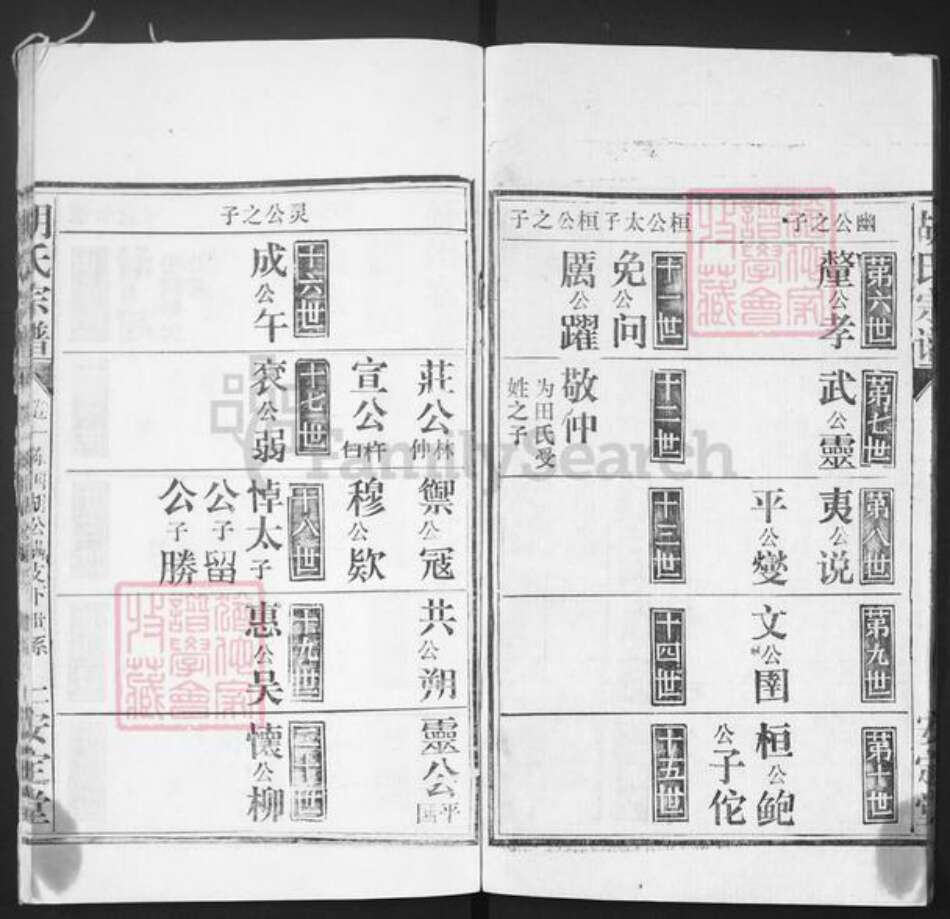 胡氏宗譜
安定堂
幽公之子
第六世
釐公孝
第七世
武公靈
第八世
夷公说
平公燮
第九世
文公圉
第十世
桓公鲍
公子佗
桓公太子
桓公之子
十一世
免公问
厲公躍
十二世
敬仲
为田氏受
姓之子
十三世
十四世
十五世
莊公林
仲
宣公杵
臼
禦公冦
穆公欵
共公朔
靈公平
国
灵公之子
十六世
成公午
十七世
哀公弱
十八世
悼太子
公子留
公子勝
十九世
惠公吴
二十世
懷公柳
胡氏宗譜
安定堂
譜學會
收藏
譜學會
收藏
FamilySearch